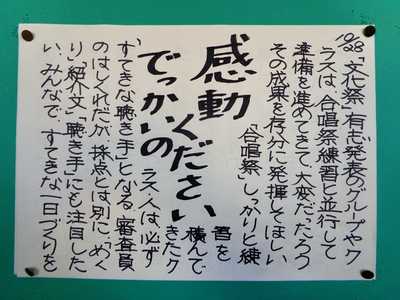 10/28
「文化祭」有志発表のグループやク
ラスは、合唱祭練習と並行して
準備を進めてきて、大変だったろう
その成果を存分に発揮してほしい
「合唱祭」しっかりと練
感動ください
でっかいの
習を
積んで
きたク
ラス、人は必ず
すてきな聴き手」となる。審査員
のはしくれだが、採点とは別に、「めく
り」「紹介文」「聴き手」にも注目した
い。みんなで、すてきな一日づくりを